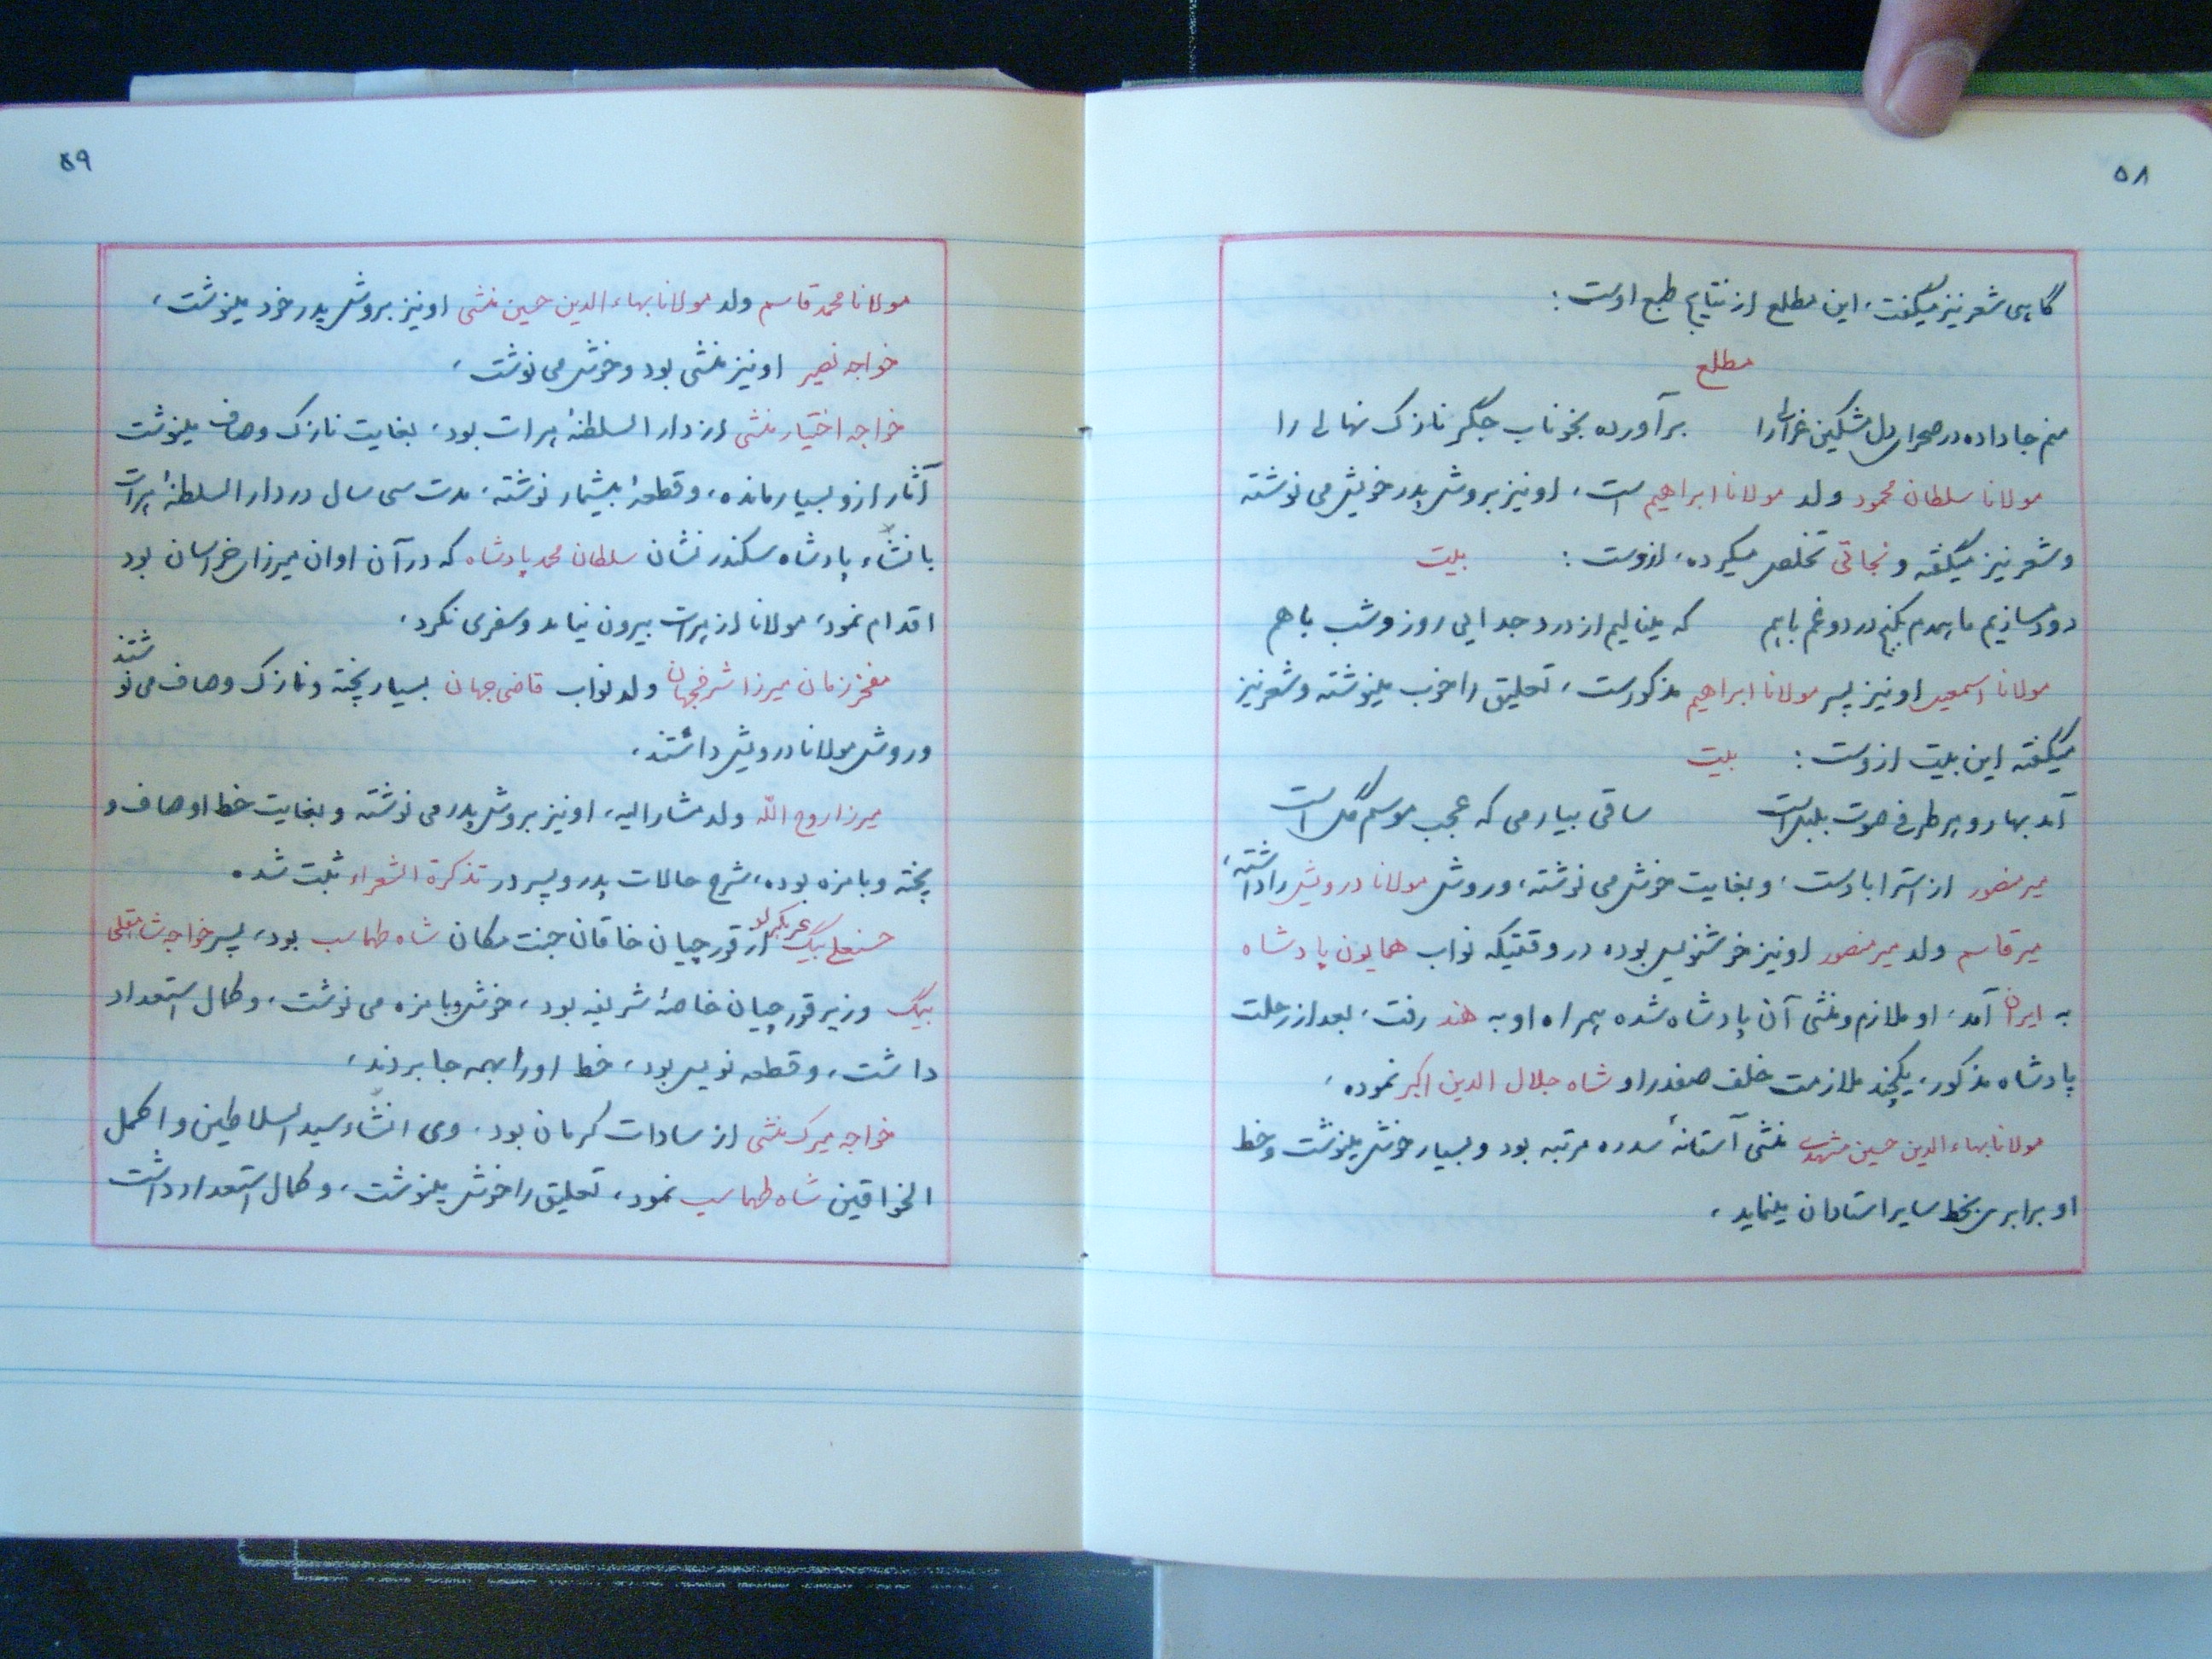 ۵۸
گاهی شعر نیز میگفت، این مطلع از نتایج طبع اوست:
مطلع
منم جا داده در صحرای دل مشکین غزالی را برآورده بخوناب جگر نازک نهالی را
مولانا سلطان محمود ولد مولانا ابراهیم است، او نیز بروش پدر خویش می نوشته
و شعر نیز میگفته و نجاتی تخلص میکرده، ازوست: بیت
ما همدم بکنج درد و غم باهم که مینالیم از درد جدایی روز و شب با هم
مولانا اسمعیل او نیز پسر مولانا ابراهیم مذکورست، تعلیق را خوب مینوشته و شعر نیز
میگفته این بیت ازوست: بیت
آمد بهار و هر طرفی صوت بلبل است ساقی بیار می که عجب موسم گل است
میر منصور از استرابادست، و بغایت خوش می نوشته، و روش مولانا درویش را داشته،
میر قاسم ولد میر منصور او نیز خوشنویس بوده در وقتیکه نواب همایون پادشاه
به ایران آمد، او ملازم و منشی آن پادشاه شده همراه او به هند رفت، بعد از رحلت
پادشاه مذکور، یکچند ملازمت خلف صفدر او شاه جلال الدین اکبر نموده،
مولانا بهاء الدین حسین مشهدی منشی آستانهٔ سدره مرتبه بود و بسیار خوش مینوشت و خط
او برابری بخط سایر استادان مینماید،
۵۹
مولانا محمد قاسم ولد مولانا بهاء الدین حسین منشی او نیز بروش پدر خود مینوشت،
خواجه نصیر او نیز منشی بود و خوش می نوشت،
خواجه اختیار منشی از دار السلطنهٔ هرات بود، بغایت نازک و صاف مینوشت
آثار ازو بسیار مانده، و قطعهٔ بیشمار نوشته، مدت سی سال در دار السلطنهٔ هرات
بانشاء پادشاه سکندر نشان سلطان محمد پادشاه که در آن اوان میرزای خراسان بود
اقدام نمود، مولانا از هرات بیرون نیامد و سفری نکرد،
مفخر زمان میرزا شرفجهان ولد نواب قاضی جهان بسیار پخته و نازک و صاف می نوشتند
و روش مولانا درویش داشتند،
میرزا روح الله ولد مشار الیه، او نیز بروش پدر می نوشته و بغایت خط او صاف و
پخته و بامزه بوده، شرح حالات پدر و پسر در تذکرة الشعراء ثبت شده
حسنعلی بیگ عربگیرلو از قورچیان خاقان جنت مکان شاه طهماسب بود، پسر خواجه شاهقلی
بیگ وزیر قورچیان خاصهٔ شریفه بود، خوش و بامزه می نوشت، و کمال استعداد
داشت، و قطعه نویس بود، خط او را بهمه جا بردند،
خواجه میرک منشی از سادات کرمان بود، وی انشاء سید السلاطین و اکمل
الخواقین شاه طهماسب نمود، تعلیق را خوش مینوشت، و کمال استعداد داشت